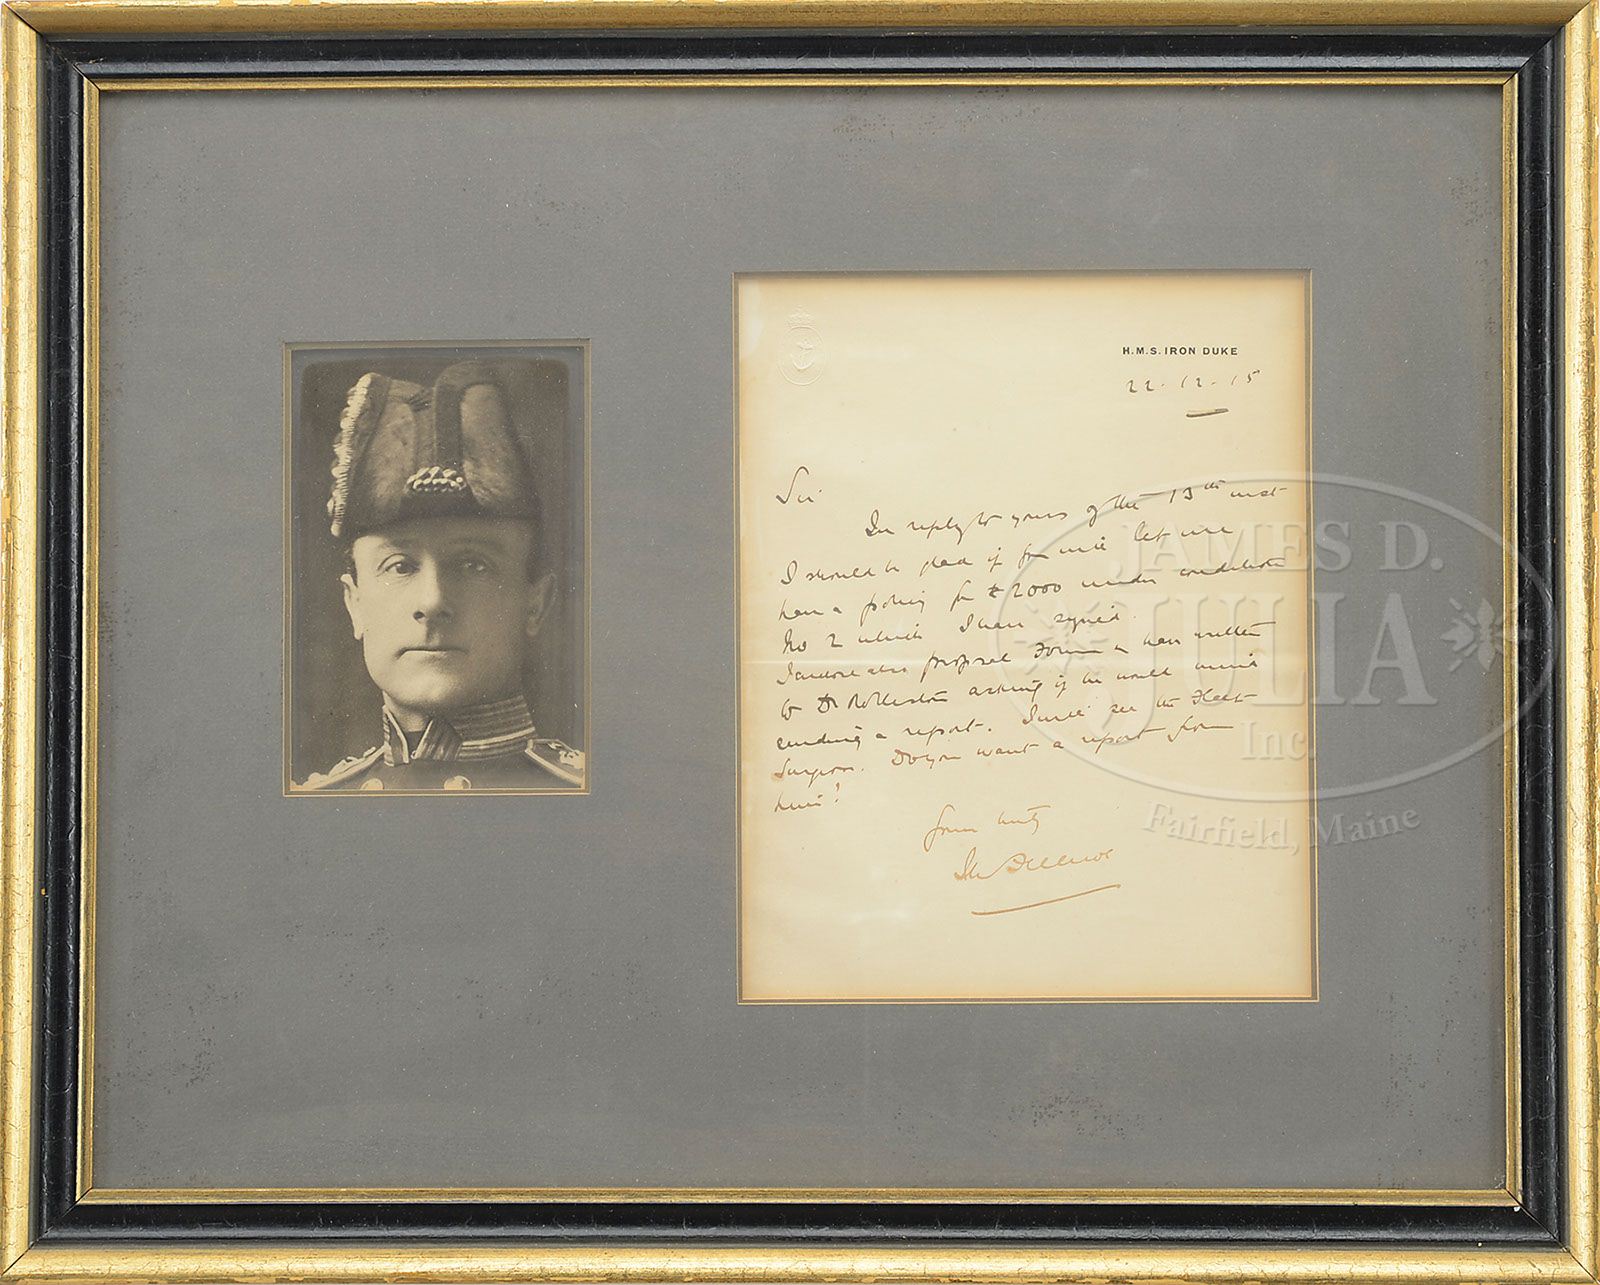 H.M.S. IRON DUKE
22.12.15
Sir
In reply to yours of the 13th inst
I should be glad if you will let me
have a policy for £2000 under condition
No 2 which I have signed.
I enclose also proposal Form & have written
to Dr Rolleston asking if he would mind
sending a report. I will see the Fleet
Surgeon. Do you want a report from
him?
Yours truly
JAMES D.
JULIA
Inc.
Fairfield, Maine